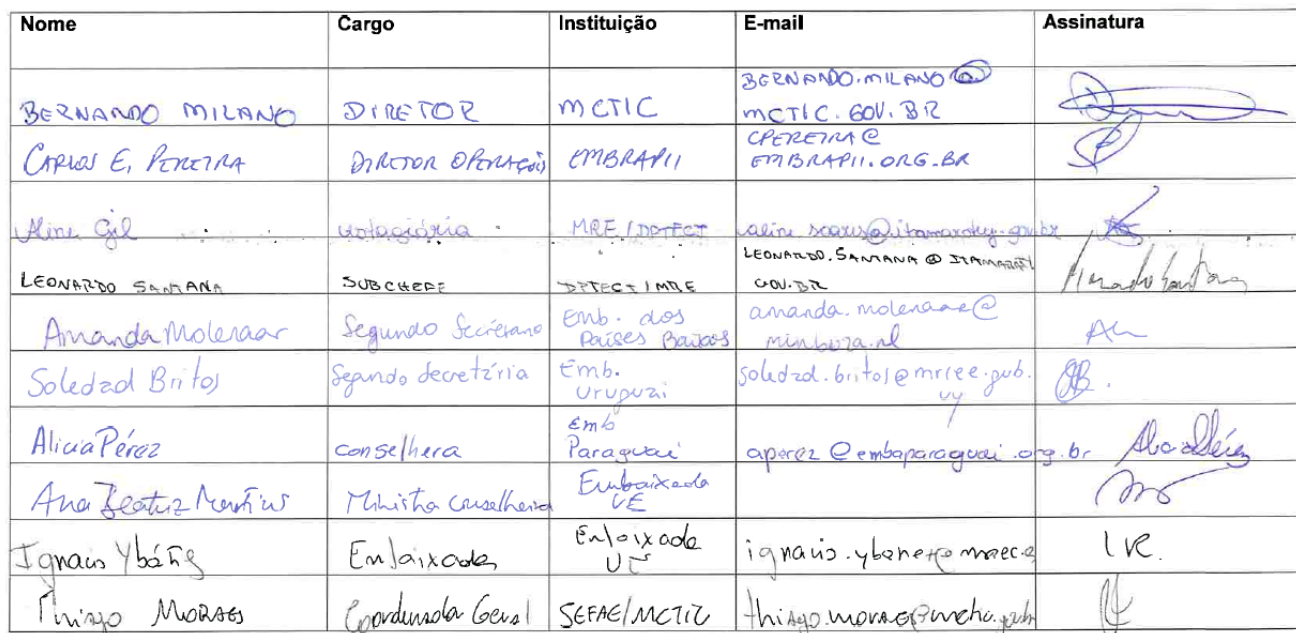 Nome Cargo Instituição E-mail Assinatura
BERNARDO MILANO DIRETOR MCTIC BERNARDO.MILANO@
MCTIC.GOV.BR
CARLOS E. PEREIRA DIRETOR OPERAÇÕES EMBRAPII CPEREIRA@
EMBRAPII.ORG.BR
Aline Gil estagiária MRE/DPTECT aline.soares@itamaraty.gov.br
LEONARDO SANTANA SUBCHEFE DPTECT/MRE LEONARDO.SANTANA@ITAMARATY.
GOV.BR
Amanda Molenaar Segundo Secretário Emb. dos
Países Baixos amanda.molenaar@
minbuza.nl
Soledad Britos Segundo secretária Emb.
Uruguai soledad.britos@mrree.gub.
uy
Alicia Pérez conselhera Emb
Paraguai aperez@embaparaguai.org.br
Ana Beatriz Martins Ministra Conselheira Embaixada
UE
Ignacio Ybáñez Embaixador Embaixada
UE
Thiago MORAES Coordenador Geral SEFAE/MCTIC